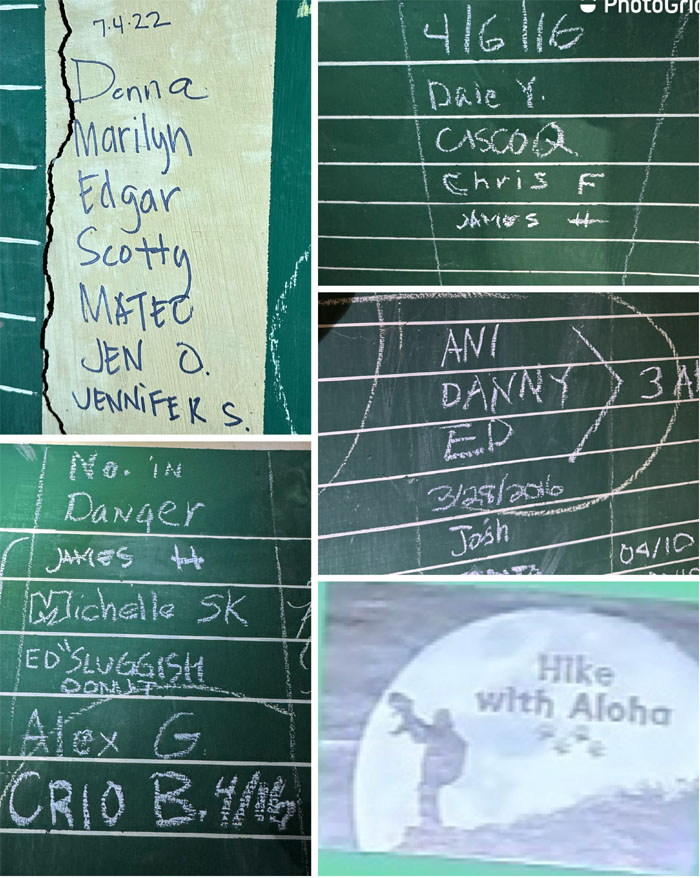 7.4.22
Donna
Marilyn
Edgar
Scotty
MATEO
JEN O.
JENNIFER S.
PhotoGri
4/6/16
Dale Y.
CASCO Q
Chris F
JAMES H
ANI
DANNY 3 A
ED
3/28/2016
Josh
04/10
No. in
Danger
JAMES H
Michelle SK
ED "SLUGGISH
Alex G
CRIO B.
Hike
with Aloha